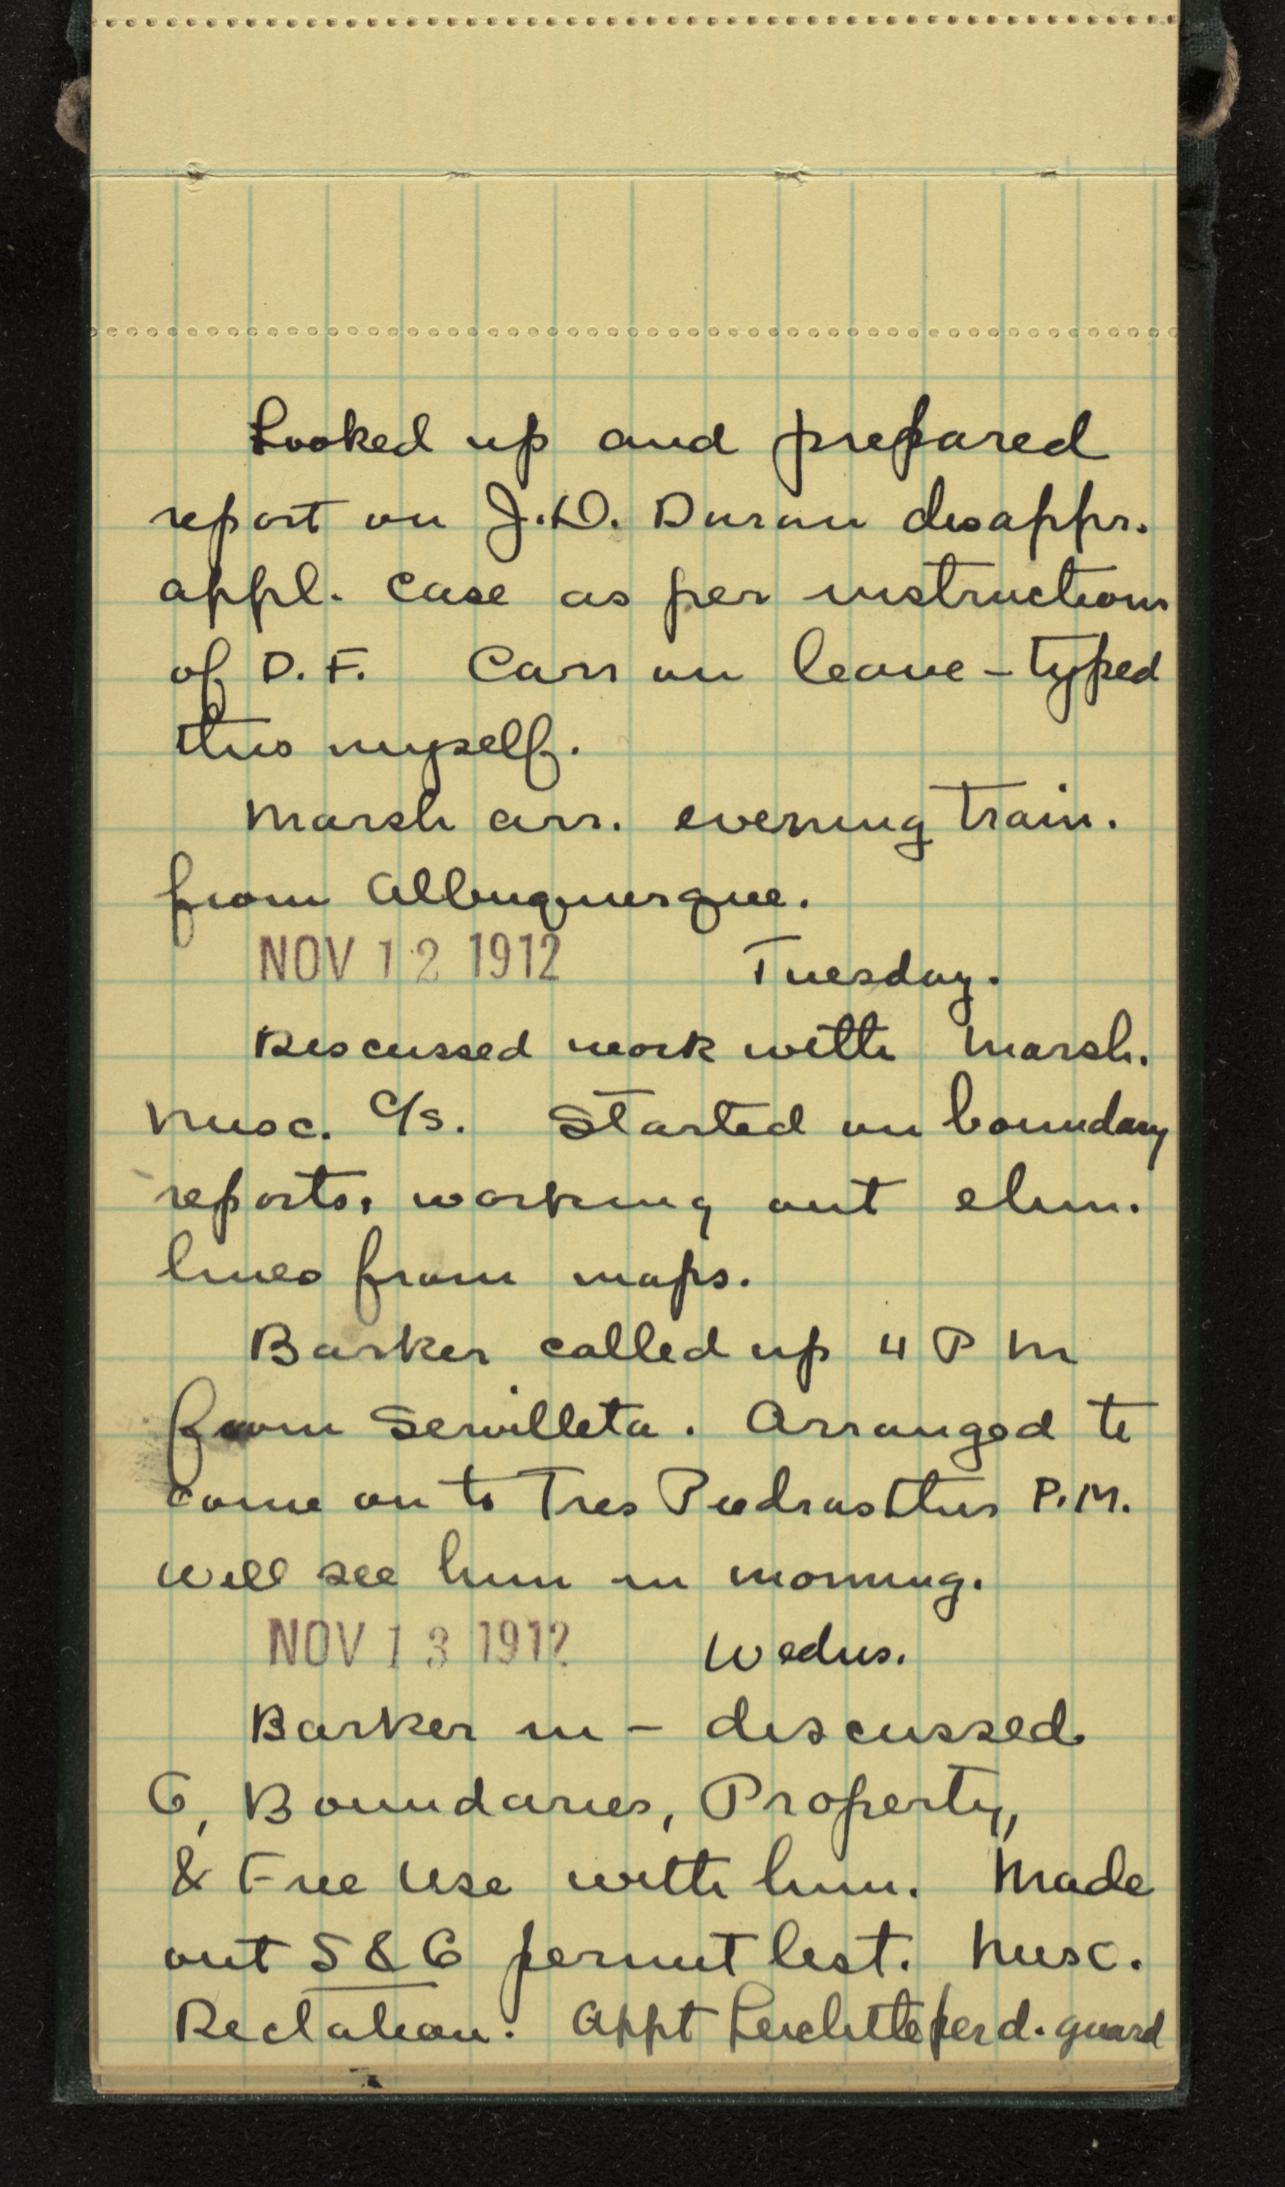 Looked up and prepared
report on J.D. Duran disappr.
appl. case as per instructions
of D. F. Carr on leave - typed
this myself.
Marsh arr. evening train.
from Albuquerque.
NOV 12 1912 Tuesday.
Discussed work with Marsh.
Misc. c/s. Started on boundary
reports, working out elim.
lines from maps.
Barker called up 4 P M
from Servilleta. Arranged to
come on to Tres Piedras this P.M.
will see him in morning.
NOV 13 1912 Wedns.
Barker in - discussed
G, Boundaries, Property,
& Free Use with him. Made
out S & G permit list. Misc.
Dictation. Appt per d. guard